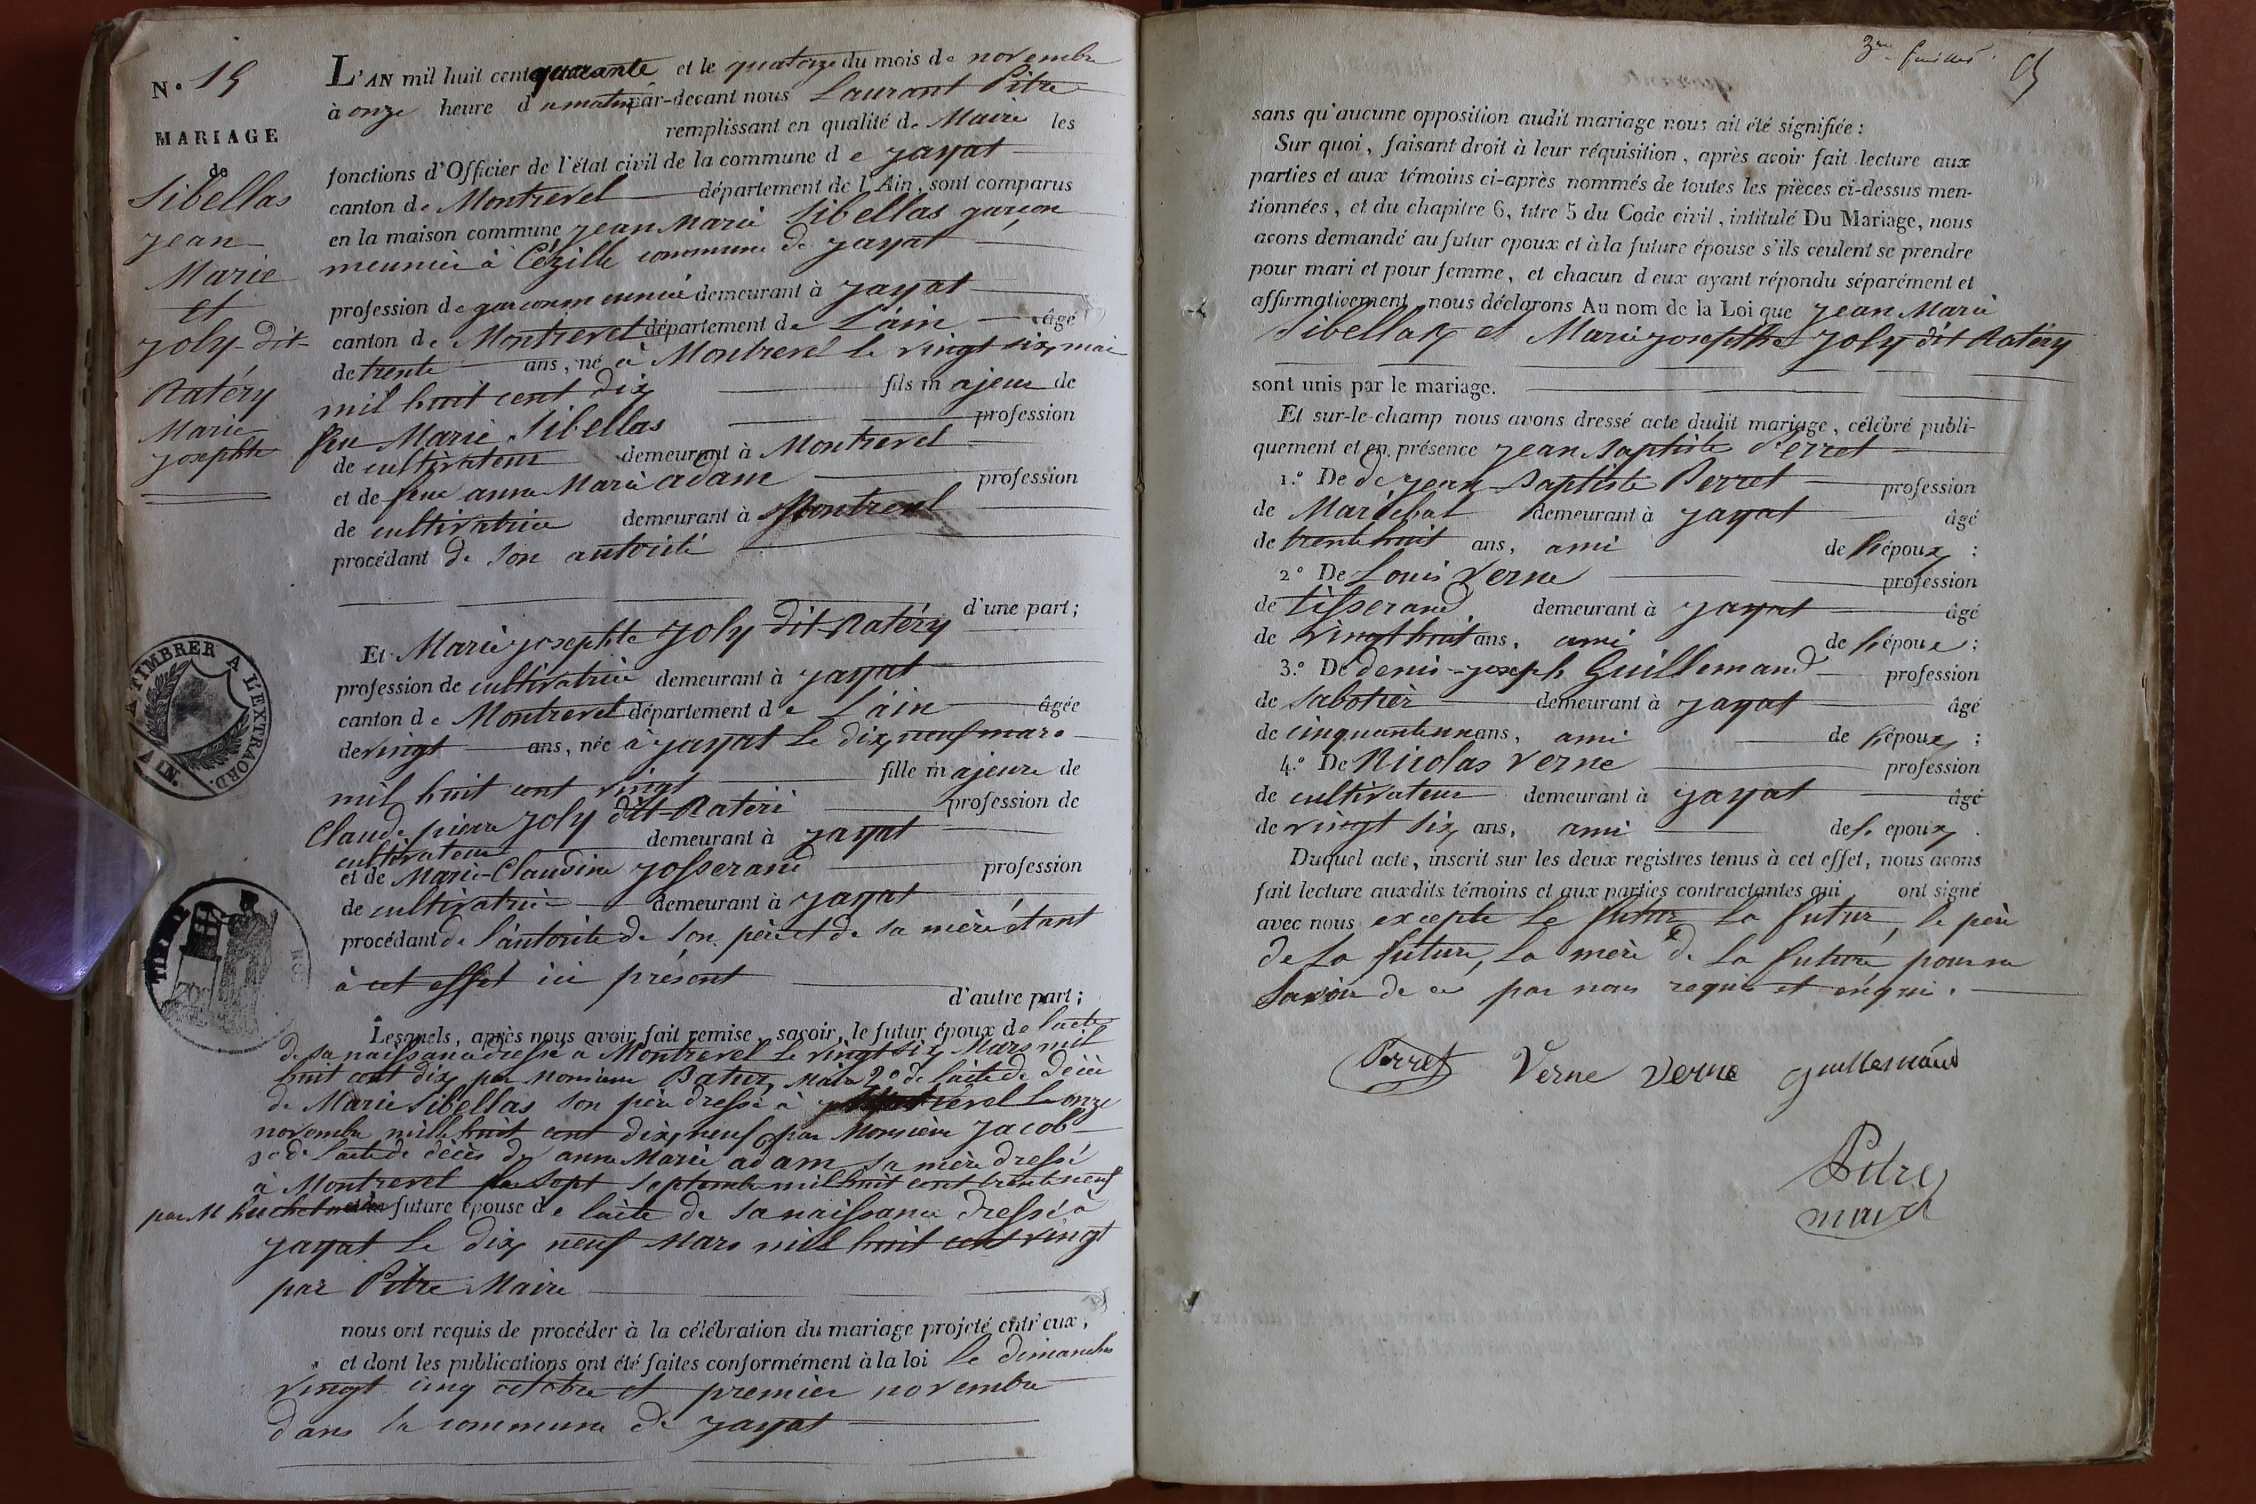 N.º 15
MARIAGE
de
Sibellas
jean
Marie
et
Joly-dit-
Ratéry
Marie
josephte
L'AN mil huit cent quarante et le quatorze du mois de novembre
à onze heure du matin par-devant nous Laurant Pitre
remplissant en qualité de Maire les
fonctions d'Officier de l'état civil de la commune de jayat
canton de Montrevel département de l'Ain, sont comparus
en la maison commune jean Marie Sibellas garçon
meunier à Cézille commune de jayat
profession de garconmeunié demeurant à jayat
canton de Montrevel département de l'ain âgé
de trente ans, né à Montrevel le vingt six mai
mil huit cent dix fils majeur de
feu Marie Sibellas profession
de cultivateur demeurant à Montrevel
et de feue anne Marie adam profession
de cultivatrice demeurant à Montrevel
procédant de son autorité
d'une part;
Et Marie josephte joly dit-Ratéry
profession de cultivatrice demeurant à jayat
canton de Montrevel département de l'ain âgée
de vingt ans, née à jayat le dix neuf mars
mil huit cent vingt fille majeure de
Claude pierre joly dit-Ratéri profession de
cultivateur demeurant à jayat
et de Marie-Claudine josserand profession
de cultivatrice demeurant à jayat
procédant de l'autorité de son père et de sa mère étant
à cet effet ici présent
d'autre part;
Lesquels, après nous avoir fait remise, savoir, le futur époux de l'acte
de sa naissance dressé à Montrevel le vingt six Mars mil
huit cent dix par Monsieur Maire 2º de l'acte de décès
de Marie Sibellas son père dressé à Montrevel le onze
novembre mille huit cent dix neuf par Monsieur Jacob
3º de l'acte de décès de anne Marie adam sa mère dressé
à Montrevel le sept septembre mil huit cent trente neuf
par M future épouse de l'acte de sa naissance dressé à
jayat le dix neuf Mars mil huit cent vingt
par Pitre Maire
nous ont requis de procéder à la célébration du mariage projeté entr'eux,
et dont les publications ont été faites conformément à la loi le dimanches
vingt cinq octobre et premier novembre
dans la commune de jayat
A TIMBRER A L'EXTRAORD.
AIN.
TIMBRE
3me feuillet.
sans qu'aucune opposition audit mariage nous ait été signifiée:
Sur quoi, faisant droit à leur réquisition, après avoir fait lecture aux
parties et aux témoins ci-après nommés de toutes les pièces ci-dessus men-
tionnées, et du chapitre 6, titre 5 du Code civil, intitulé Du Mariage, nous
avons demandé au futur epoux et à la future épouse s'ils veulent se prendre
pour mari et pour femme, et chacun d'eux ayant répondu séparément et
affirmativement, nous déclarons Au nom de la Loi que jean Marie
Sibellas et Marie josephte joly dit Ratéry
sont unis par le mariage.
Et sur-le-champ nous avons dressé acte dudit mariage, célébré publi-
quement et en présence jean Baptiste Perret
1.º De de jean Baptiste Perret profession
de Maréchal demeurant à jayat âgé
de trente huit ans, ami de l'époux;
2.º De Louis Verne profession
de tisserand demeurant à jayat âgé
de vingt huit ans, ami de l'épouse;
3.º De denis-joseph Guillemaud profession
de Sabotier demeurant à jayat âgé
de cinquante un ans, ami de l'époux;
4.º De Nicolas Verne profession
de cultivateur demeurant à jayat âgé
de vingt six ans, ami de l'epoux.
Duquel acte, inscrit sur les deux registres tenus à cet effet, nous avons
fait lecture auxdits témoins et aux parties contractantes qui ont signé
avec nous excepte le futur, la futur, le père
de la future, la mère de la future, pour ne
savoir de ce par nous requis et enquis.
Perret Verne Verne guillemaud
Pitre
maire